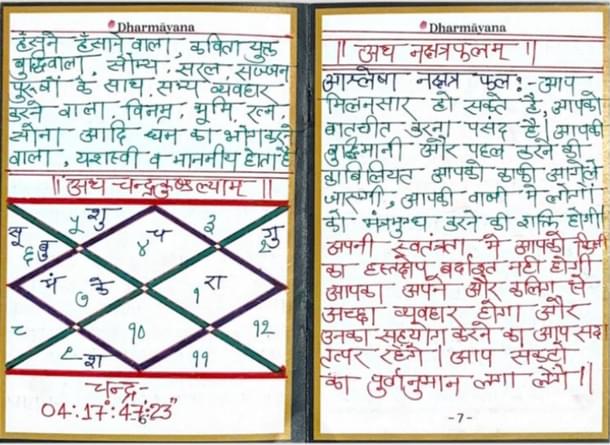 Dharmāyana
हँसने हँसाने वाला, कविता युक्त
बुद्धिवाला, सौम्य, सरल, सज्जन
पुरुषों के साथ सभ्य व्यवहार
करने वाला, विनम्र, भूमि, रत्न,
सोना आदि धन का भोग करने
वाला, यशस्वी व माननीय होता है
॥ अथ चन्द्रकुण्डल्याम् ॥
सू ५ शु ३ गु
६ बु ४ च २
मं ७ के १ रा
८ १० १२
९ श ११
चन्द्र-
04:17:47:23"
Dharmāyana
॥ अथ नक्षत्रफलम् ॥
आश्लेषा नक्षत्र फल:- आप
मिलनसार हो सकते है, आपको
बातचीत करना पसंद है। आपकी
बुद्धिमानी और पहल करने की
काबिलियत आपको काफी आगे ले
जाएगी, आपकी वाणी मे लोगो
को मंत्रमुग्ध करने की शक्ति होगी
अपनी स्वतंत्रता मे आपको किसी
का हस्तक्षेप बर्दाश्त नही होगी
आपका अपने और कलिग से
अच्छा व्यवहार होगा और
उनका सहयोग करने का आप सदा
तत्पर रहेंगे। आप संकटो
का पुर्वानुमान लगा लेंगे॥
-7-